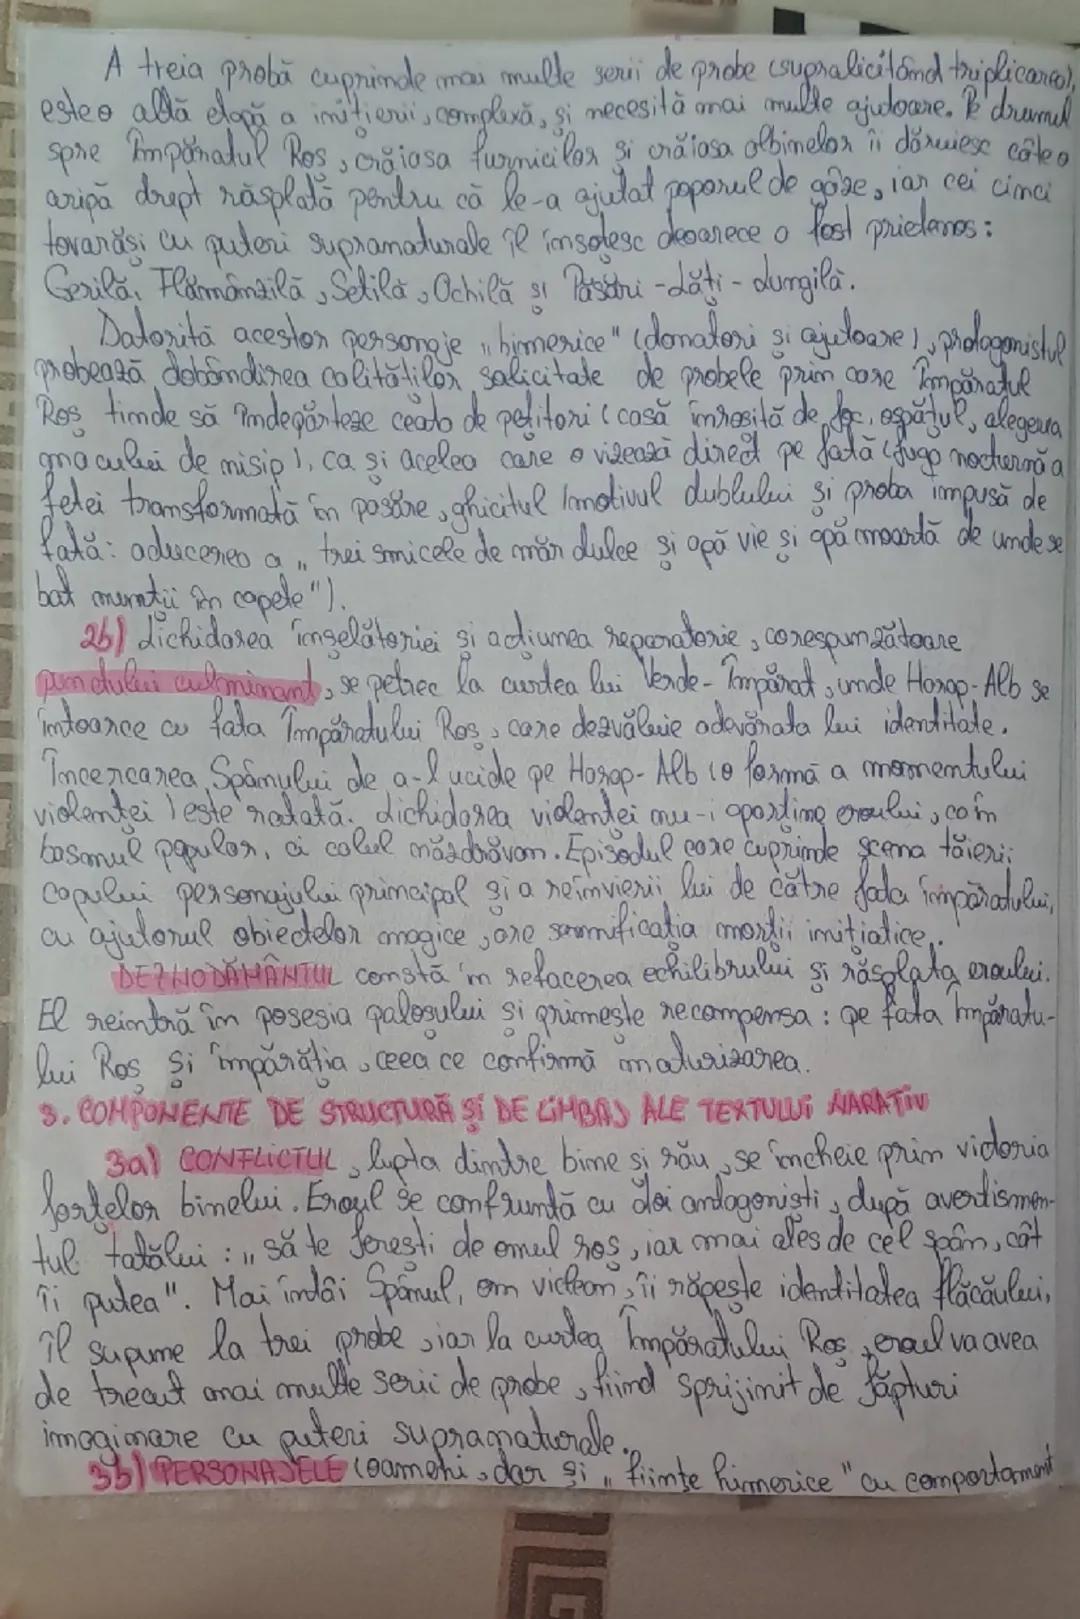 A treia probă cuprinde mai multe serii de probe (supralicitând triplicarea),
este o altă etapă a inițierii, complexă, și necesită mai multe ajutoare. Pe drumul
spre Împăratul Roș, crăiasa furnicilor și crăiasa albinelor îi dăruiesc câte o
aripă drept răsplată pentru că le-a ajutat poporul de gâze, iar cei cinci
tovarăși cu puteri supranaturale îl însoțesc deoarece a fost prietenos:
Gerilă, Flămânzilă, Setilă, Ochilă și Păsări-Lăți-Lungilă.
Datorită acestor personaje „himerice" (donatori și ajutoare), protagonistul
probează dobândirea calităților solicitate de probele prin care Împăratul
Roș tinde să îndepărteze ceata de pețitori (casă înroșită de foc, ospățul, alegerea
macului de nisip), ca și acelea care o vizează direct pe fată (fuga nocturnă a
fetei transformată în pasăre, ghicitul / motivul dublului și proba impusă de
fată: aducerea a „trei smicele de măr dulce și apă vie și apă moartă de unde se
bat munții în capete").
2b) Lichidarea înșelătoriei și acțiunea reparatorie, corespunzătoare
punctului culminant, se petrec la curtea lui Verde-Împărat, unde Harap-Alb se
întoarce cu fata Împăratului Roș, care dezvăluie adevărata lui identitate.
Încercarea Spânului de a-l ucide pe Harap-Alb (o formă a momentului
violenței) este ratată. Lichidarea violenței nu-i aparține eroului, ca în
basmul popular, ci calul năzdrăvan. Episodul care cuprinde scena tăierii
capului personajului principal și a reînvierii lui de către fata împăratului,
cu ajutorul obiectelor magice, are semnificația morții inițiatice.
DEZNODĂMÂNTUL constă în refacerea echilibrului și răsplata eroului.
El reintră în posesia paloșului și primește recompensa: pe fata Împăratu-
lui Roș și împărăția, ceea ce confirmă maturizarea.
3. COMPONENTE DE STRUCTURĂ ȘI DE LIMBAJ ALE TEXTULUI NARATIV
3a) CONFLICTUL, lupta dintre bine și rău, se încheie prin victoria
forțelor binelui. Eroul se confruntă cu doi antagoniști, după avertismen-
tul tatălui: „să te ferești de omul roș, iar mai ales de cel spân, cât
îi putea". Mai întâi Spânul, om viclean, îi răpește identitatea flăcăului,
îl supune la trei probe, iar la curtea Împăratului Roș, eroul va avea
de trecut mai multe serii de probe, fiind sprijinit de făpturi
imaginare cu puteri supranaturale.
3b) PERSONAJELE (oameni, dar și „ființe himerice" cu comportament